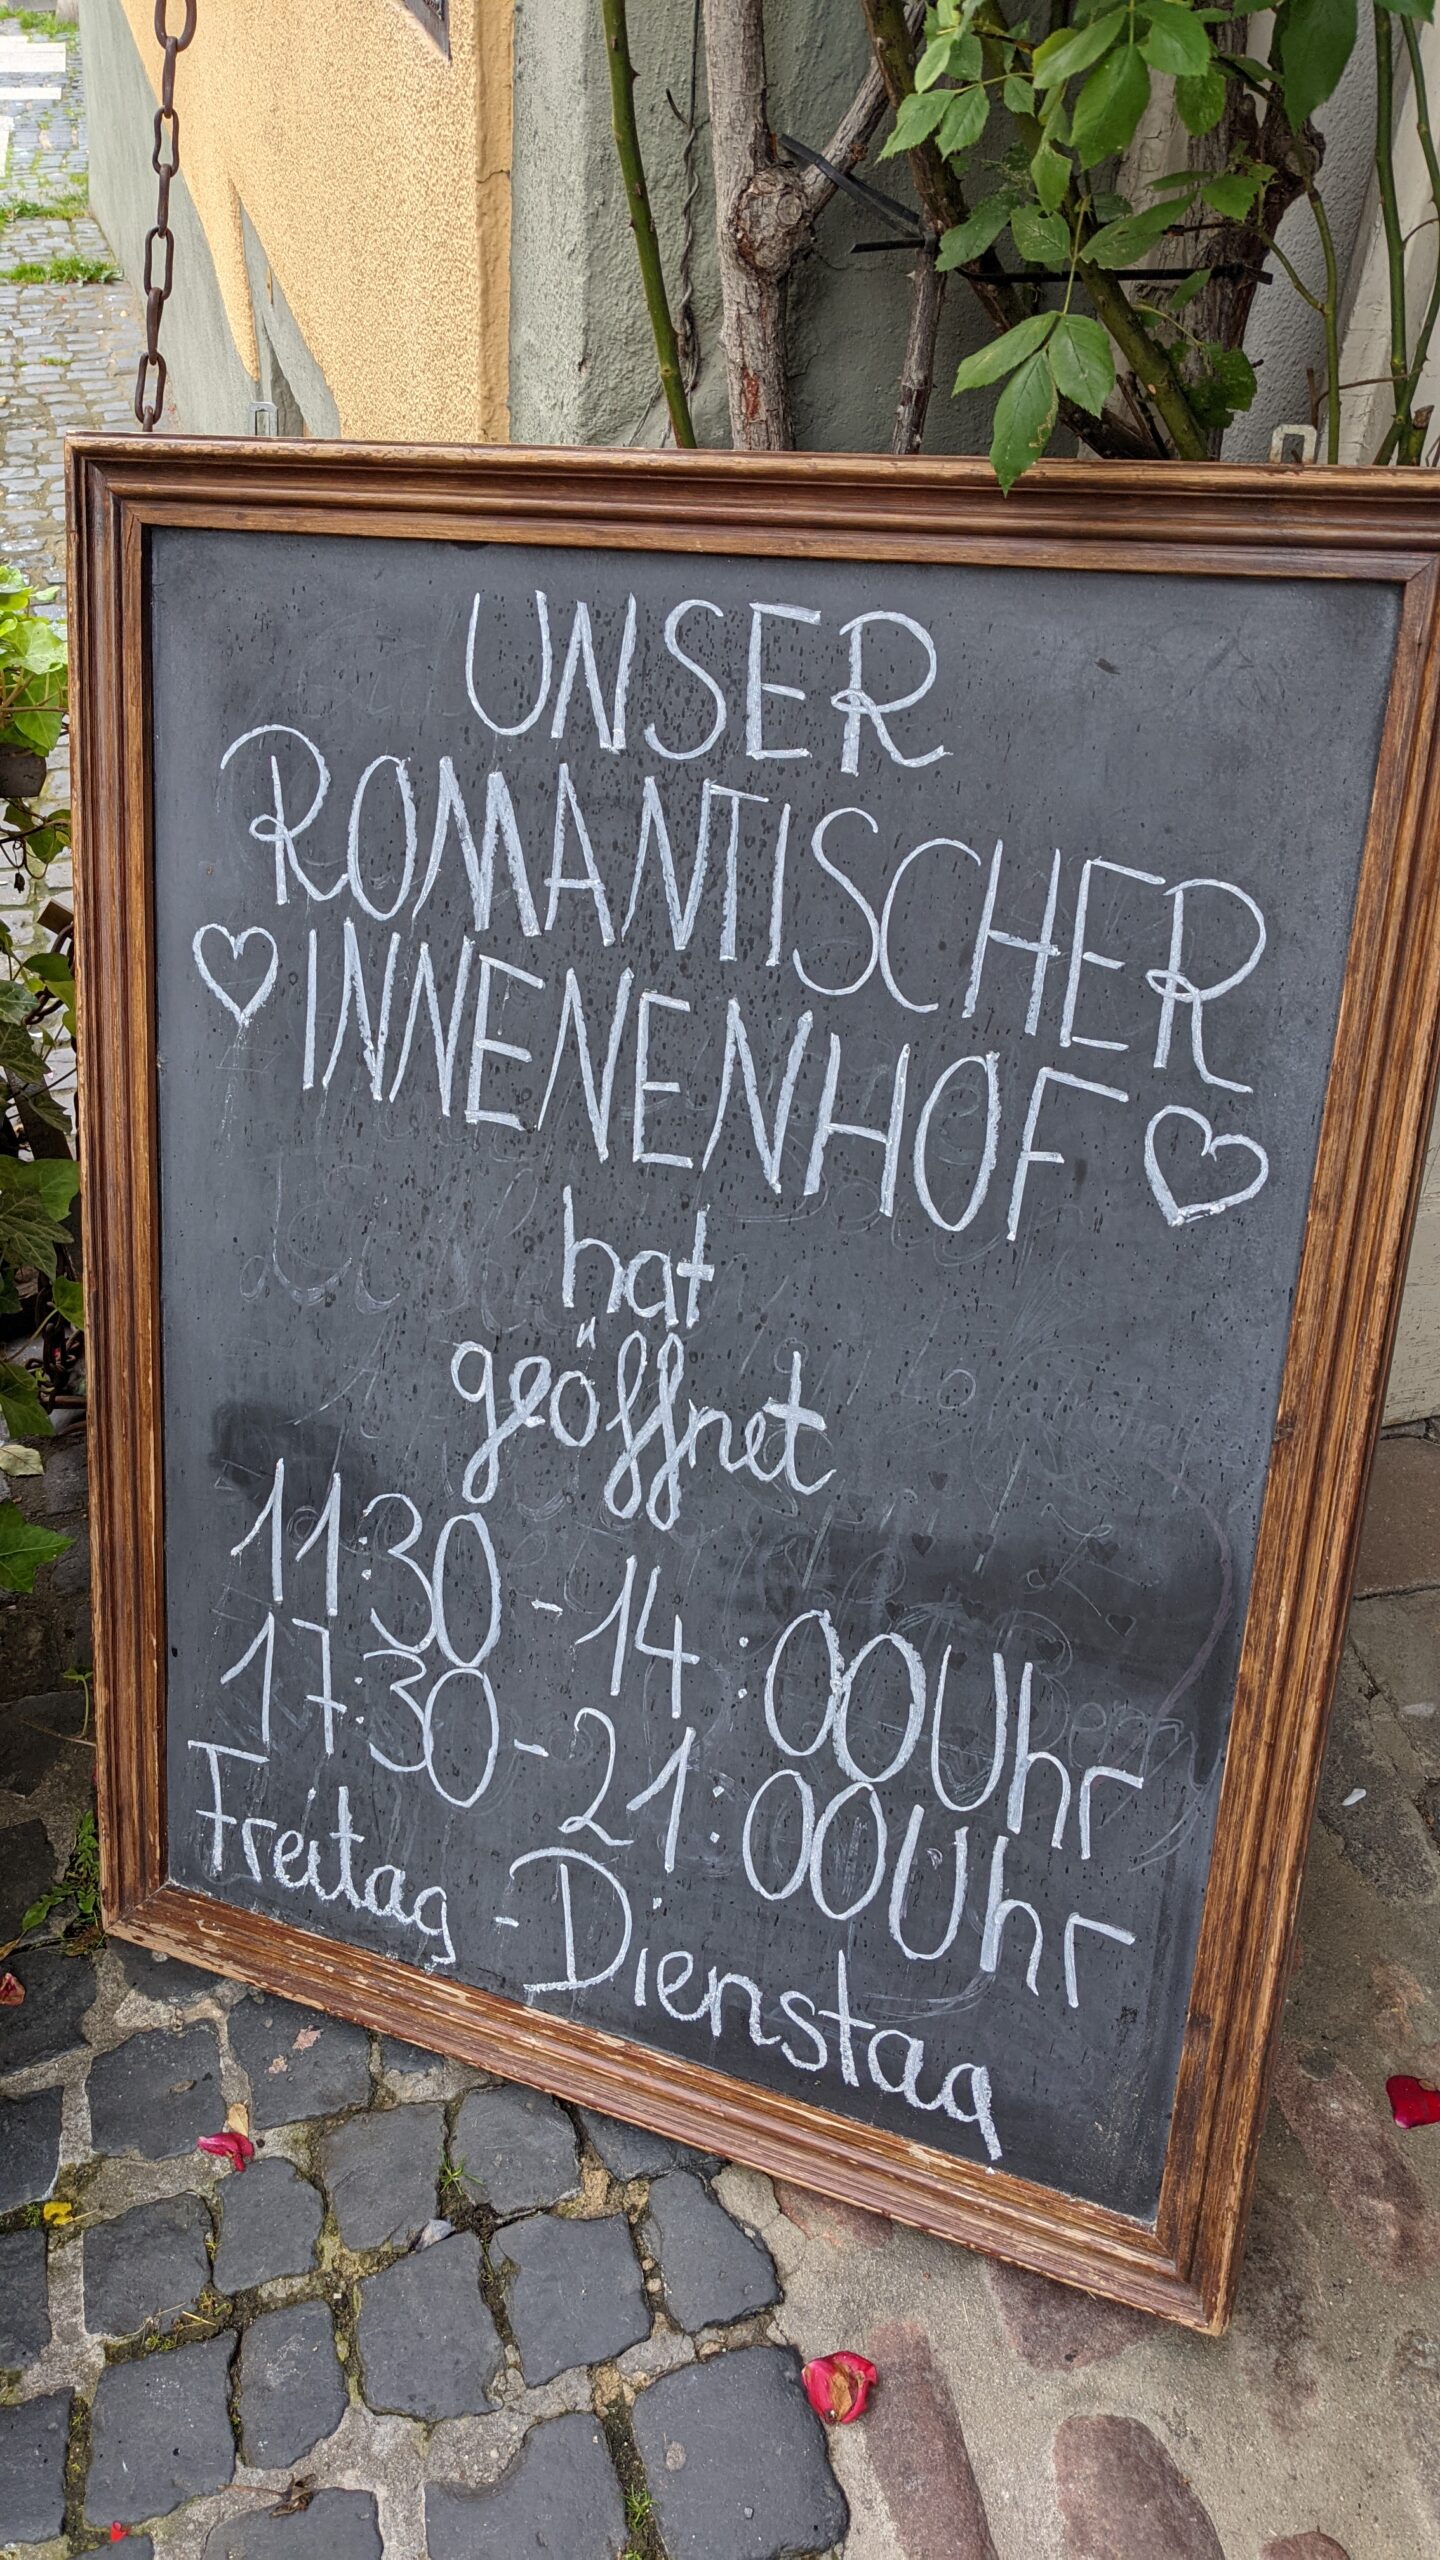 UNSER
ROMANTISCHER
♡ INNENENHOF ♡
hat
geöffnet
11:30 - 14:00 Uhr
17:30 - 21:00 Uhr
Freitag - Dienstag